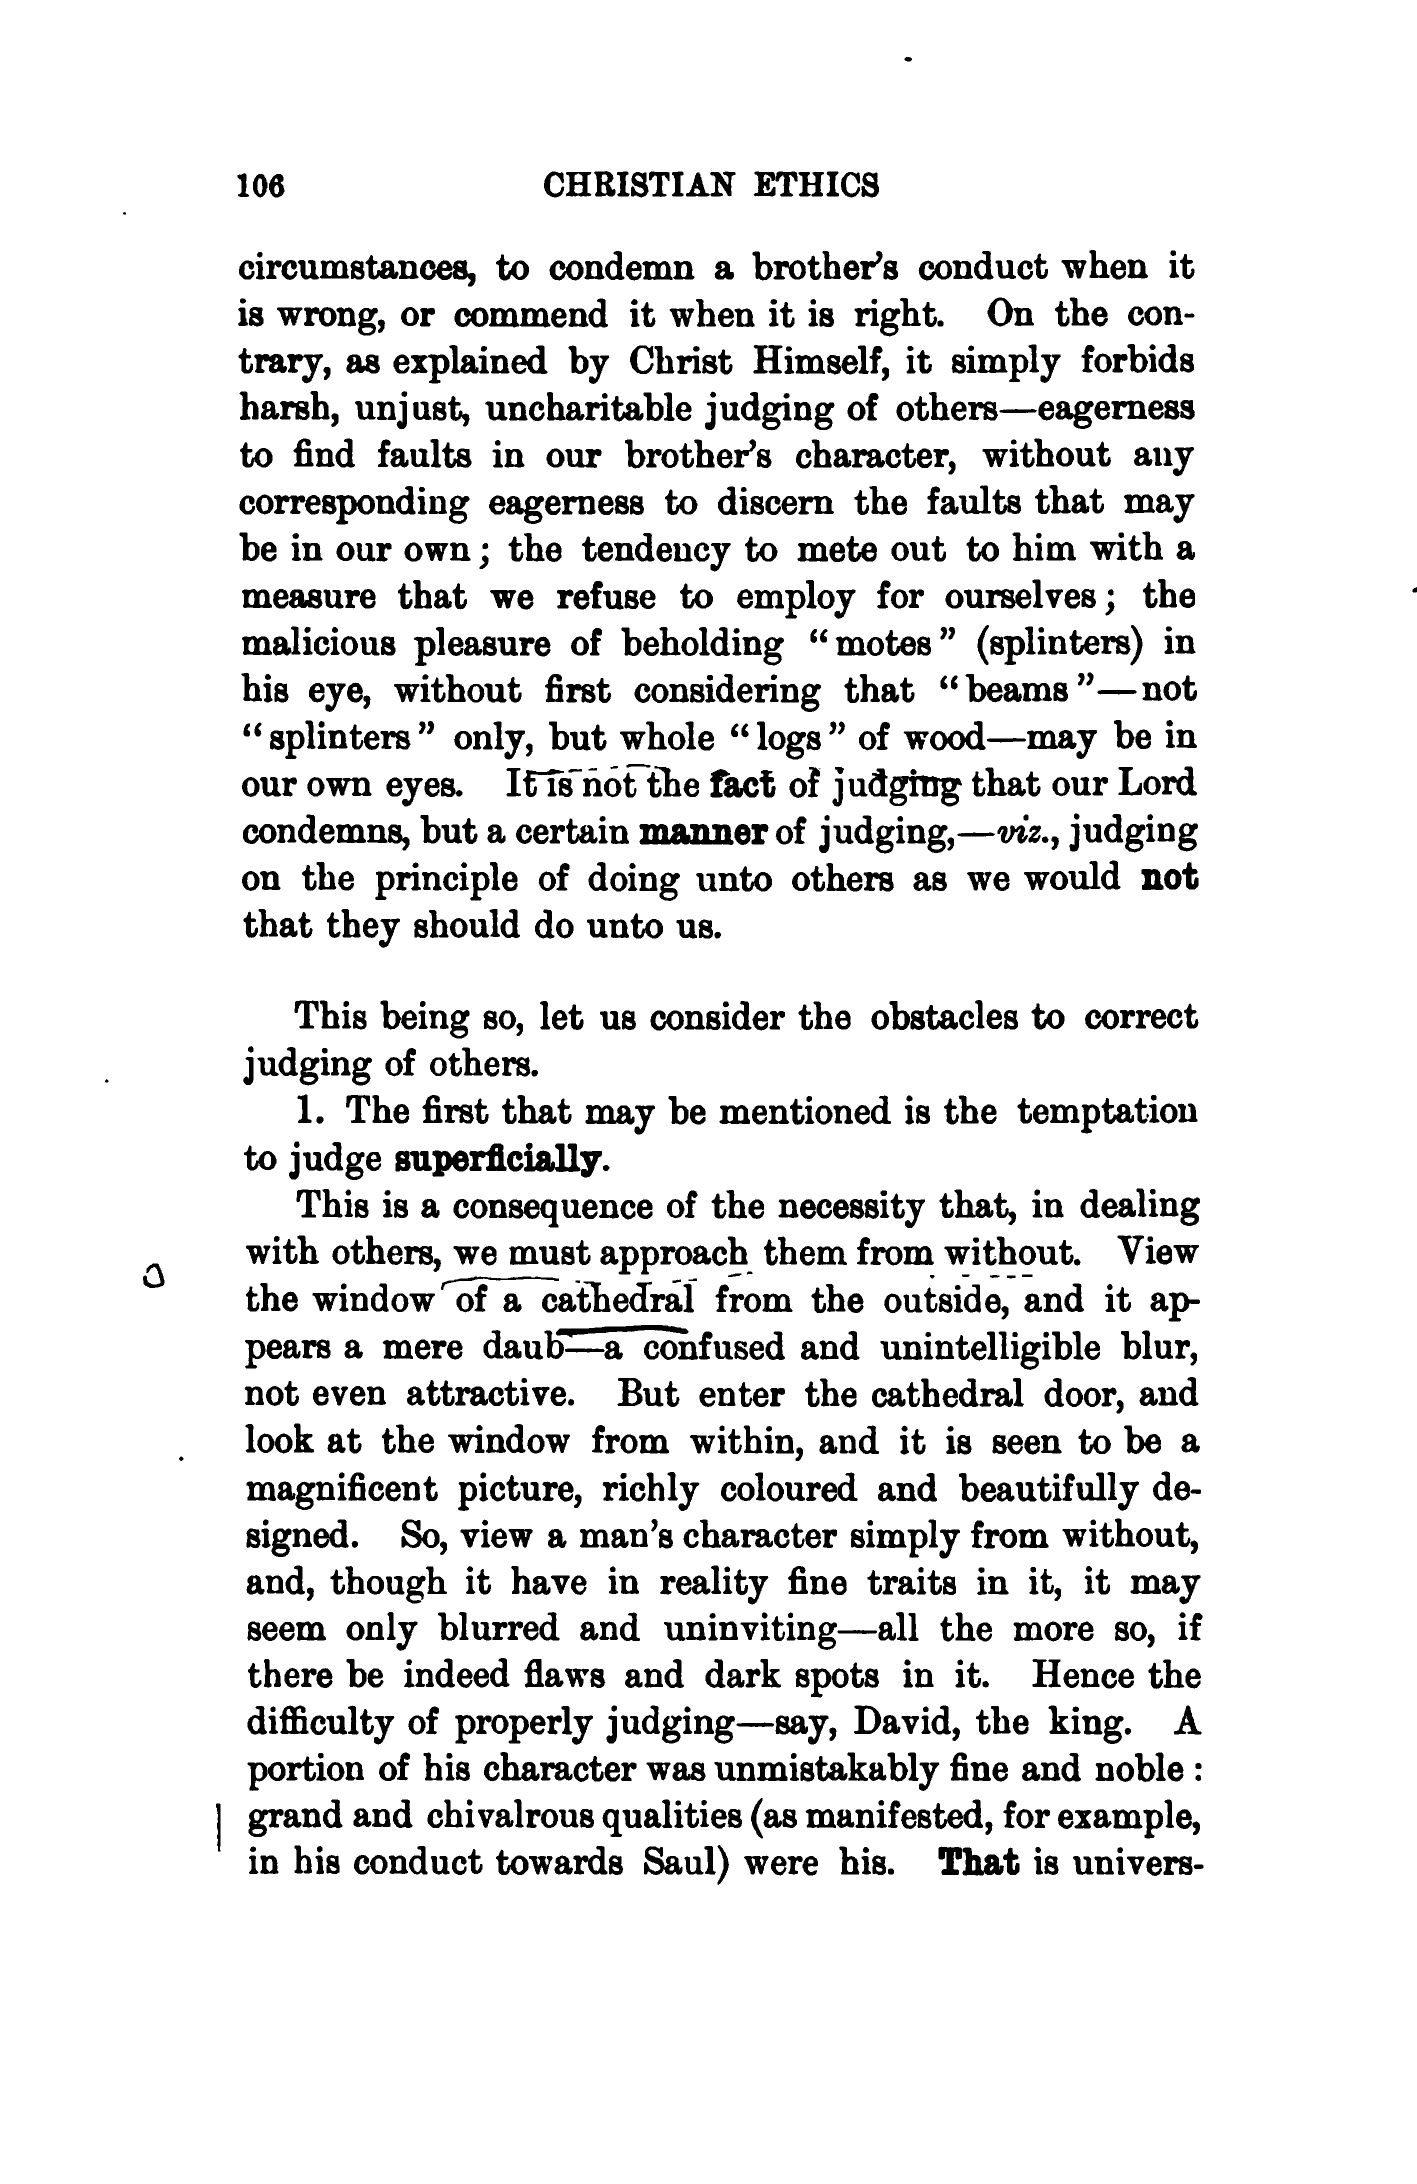 106 CHRISTIAN ETHICS
circumstances, to condemn a brother's conduct when it
is wrong, or commend it when it is right. On the con-
trary, as explained by Christ Himself, it simply forbids
harsh, unjust, uncharitable judging of others—eagerness
to find faults in our brother's character, without any
corresponding eagerness to discern the faults that may
be in our own; the tendency to mete out to him with a
measure that we refuse to employ for ourselves; the
malicious pleasure of beholding "motes" (splinters) in
his eye, without first considering that "beams"—not
"splinters" only, but whole "logs" of wood—may be in
our own eyes. It is not the fact of judging that our Lord
condemns, but a certain manner of judging,—viz., judging
on the principle of doing unto others as we would not
that they should do unto us.
This being so, let us consider the obstacles to correct
judging of others.
1. The first that may be mentioned is the temptation
to judge superficially.
This is a consequence of the necessity that, in dealing
with others, we must approach them from without. View
the window of a cathedral from the outside, and it ap-
pears a mere daub—a confused and unintelligible blur,
not even attractive. But enter the cathedral door, and
look at the window from within, and it is seen to be a
magnificent picture, richly coloured and beautifully de-
signed. So, view a man's character simply from without,
and, though it have in reality fine traits in it, it may
seem only blurred and uninviting—all the more so, if
there be indeed flaws and dark spots in it. Hence the
difficulty of properly judging—say, David, the king. A
portion of his character was unmistakably fine and noble:
grand and chivalrous qualities (as manifested, for example,
in his conduct towards Saul) were his. That is univers-